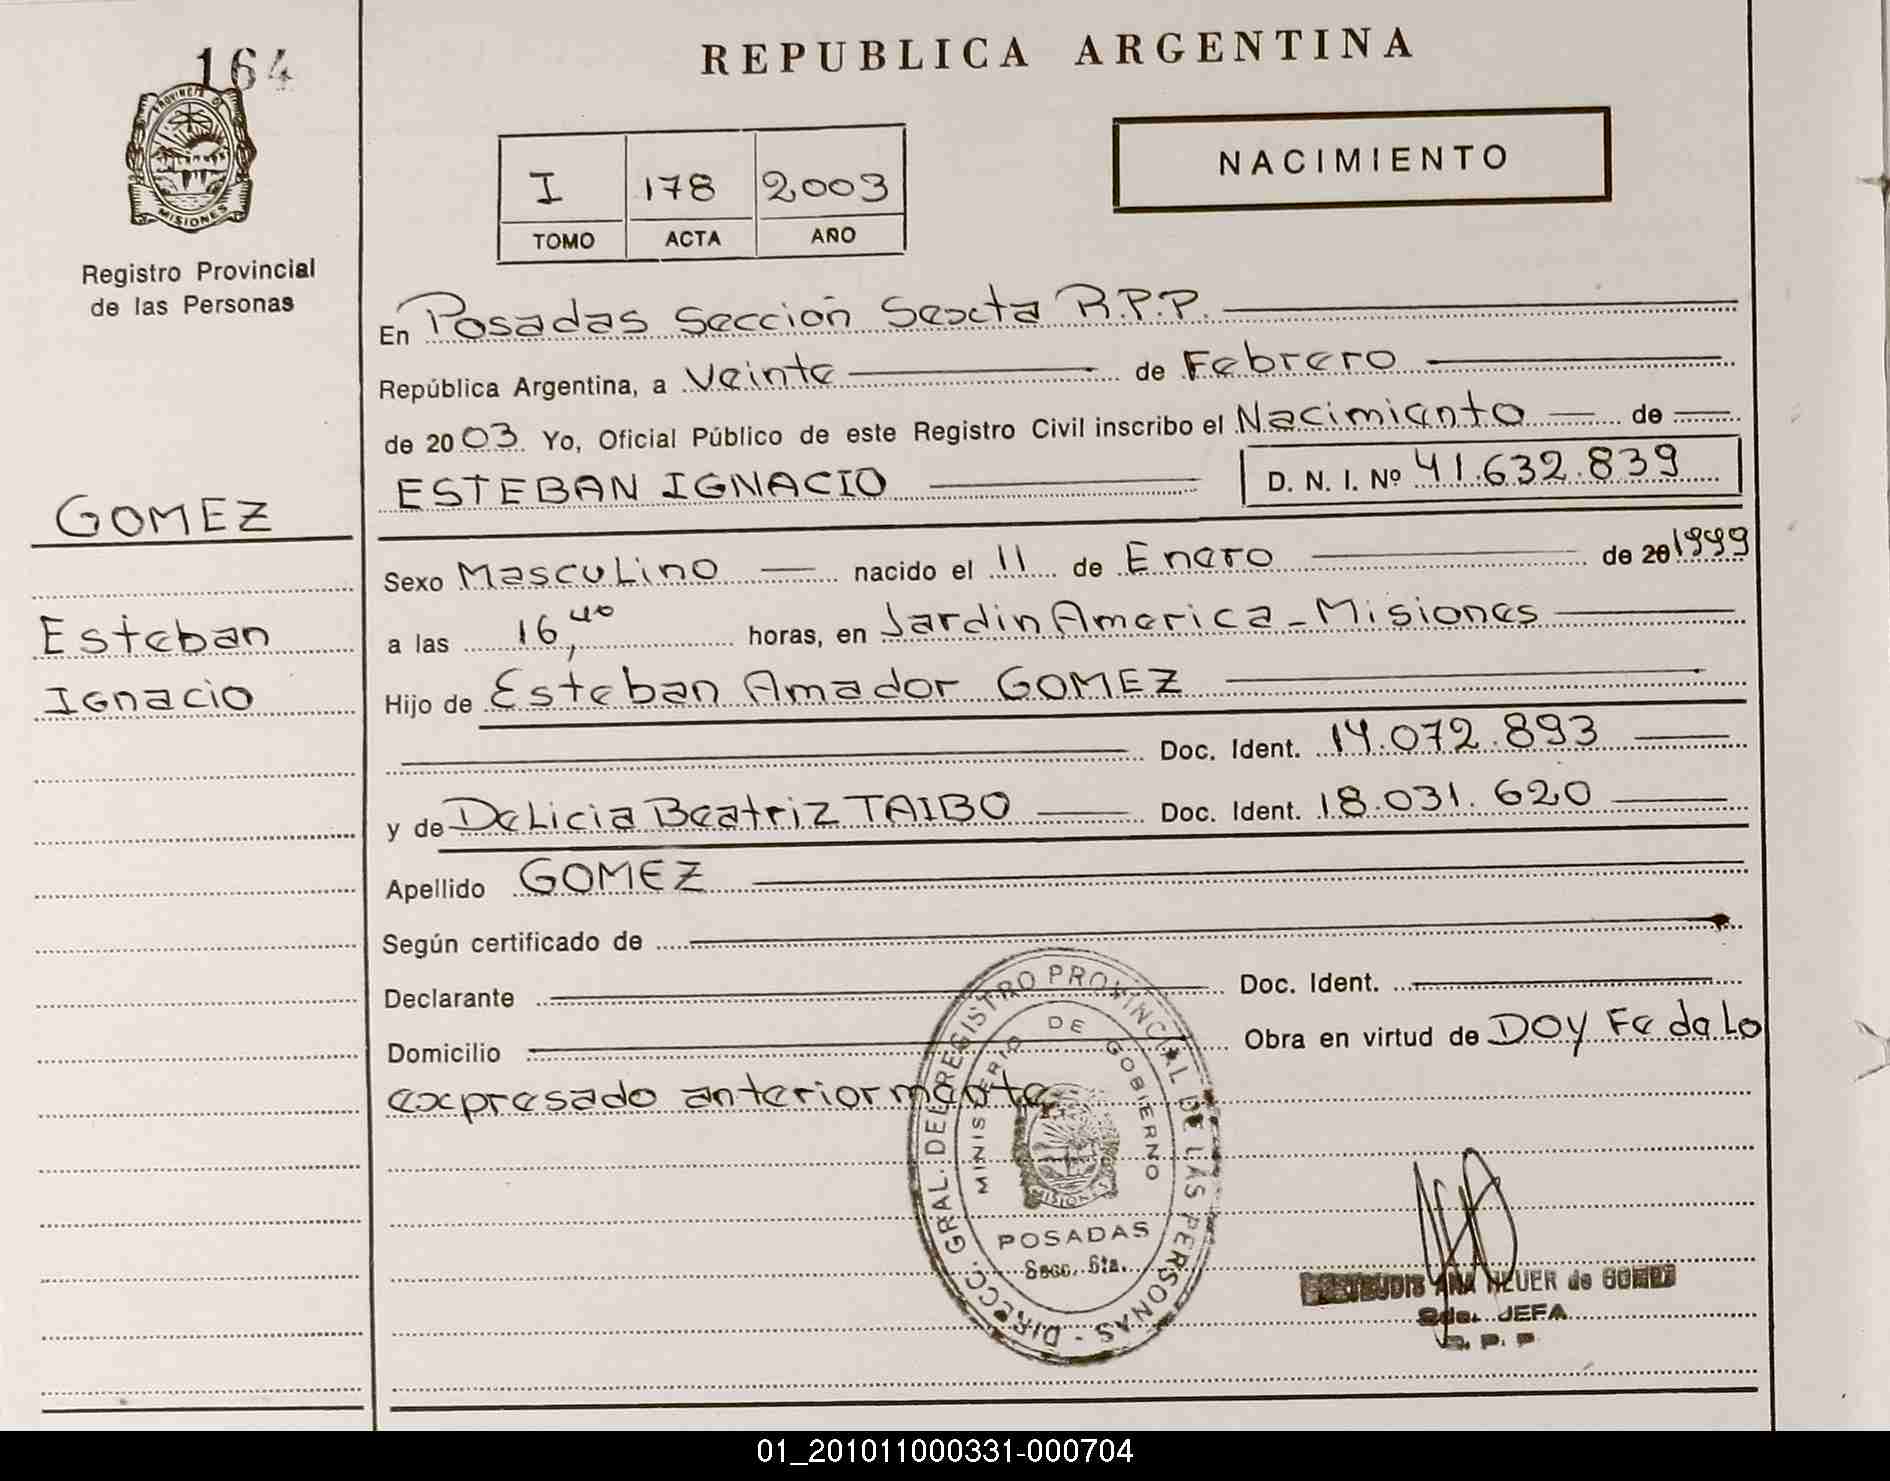 164
PROVINCIA DE
MISIONES
Registro Provincial
de las Personas
REPUBLICA ARGENTINA
NACIMIENTO
I 178 2003
TOMO ACTA AÑO
En Posadas Sección Sexta R.P.P.
República Argentina, a Veinte de Febrero
de 2003 Yo, Oficial Público de este Registro Civil inscribo el Nacimiento de
ESTEBAN IGNACIO D. N. I. Nº 41.632.839
GOMEZ
Esteban
Ignacio
Sexo Masculino nacido el 11 de Enero de 20 1999
a las 16,40 horas, en Jardin America - Misiones
Hijo de Esteban Amador GOMEZ
Doc. Ident. 14.072.893
y de Delicia Beatriz TAIBO Doc. Ident. 18.031.620
Apellido GOMEZ
Según certificado de
Declarante Doc. Ident.
Domicilio Obra en virtud de DOY Fe de Lo
expresado anteriormente
DIRECC. GRAL. DEL REGISTRO PROVINCIAL DE LAS PERSONAS
MINISTERIO DE GOBIERNO
MISIONES
POSADAS
Secc. 6ta.
ANA HEUER de GOMEZ
Sda. JEFA
R. P. P
01_201011000331-000704